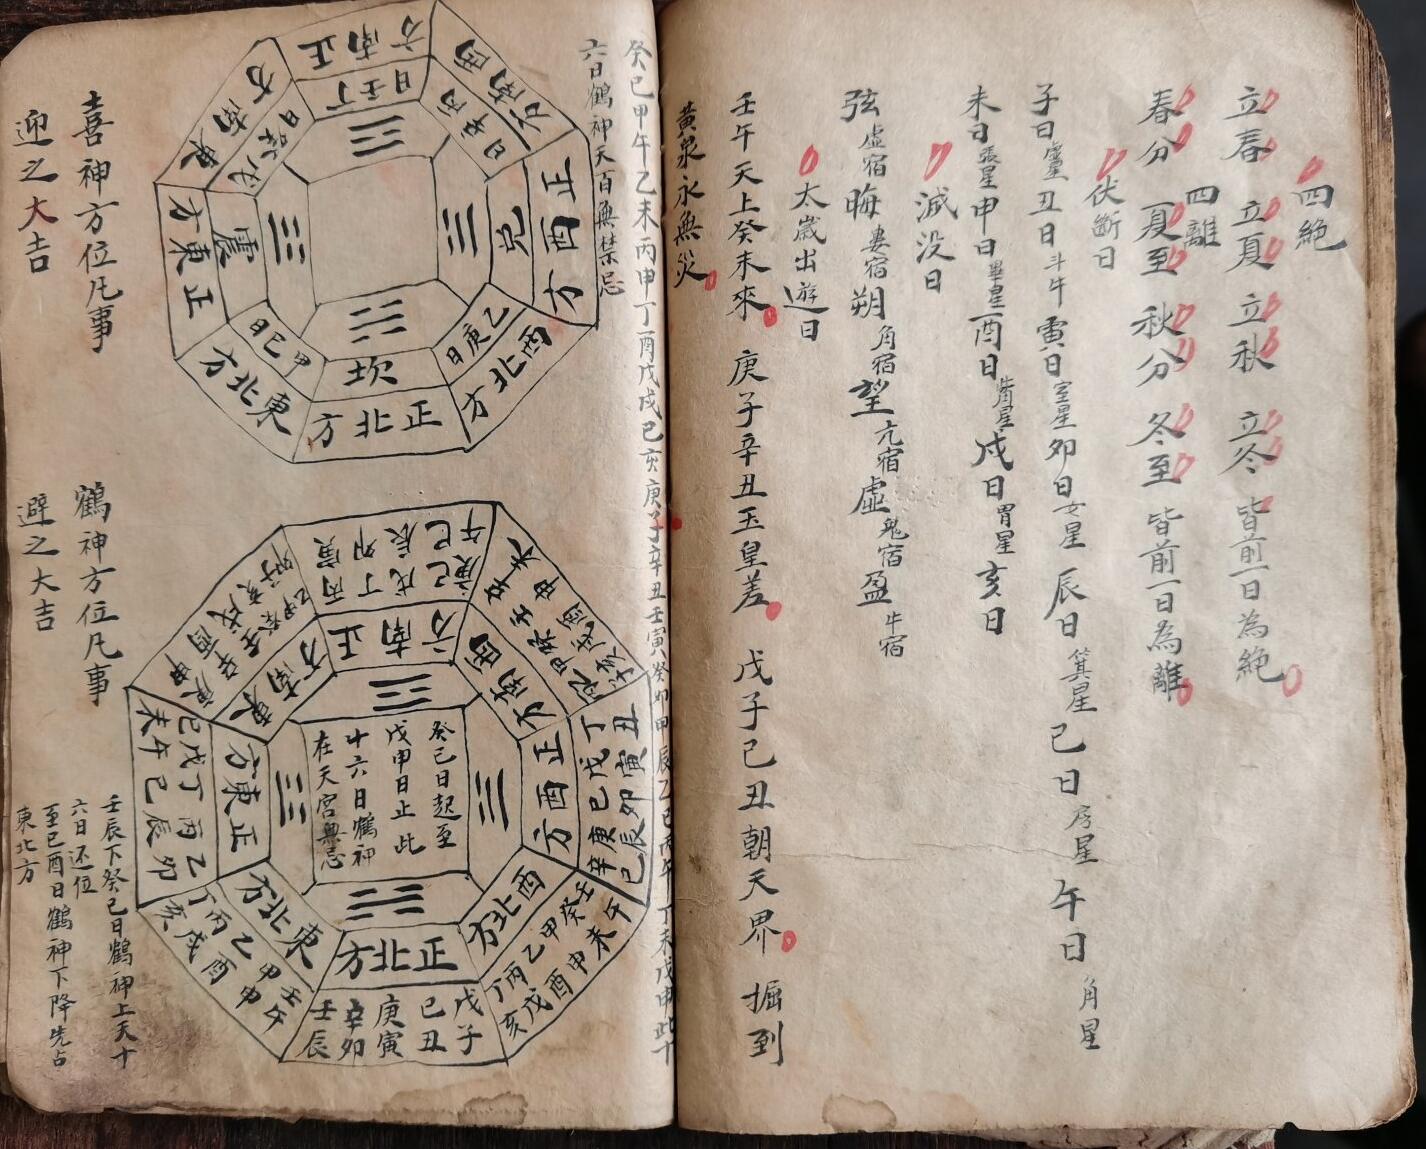 四絕
立春 立夏 立秋 立冬 皆前一日為絕
四離
春分 夏至 秋分 冬至 皆前一日為離
伏斷日
子日虛星丑日斗牛寅日室星卯日女星辰日箕星巳日房星午日角星
未日張星申日畢星酉日觜星戌日胃星亥日
滅没日
弦虛宿晦婁宿朔角宿望亢宿虛鬼宿盈牛宿
太歲出遊日
壬午天上癸未來 庚子辛丑玉皇差 戊子己丑朝天界 掘到
黃泉永無災
癸巳甲午乙未丙申丁酉戊戌己亥庚子辛丑壬寅癸卯甲辰乙巳丙午丁未戊申此十
六日鶴神天百無禁忌
正南方
丁壬日
西南方
丙辛日
正酉方
兌
西北方
乙庚日
正北方
坎
東北方
甲己日
正東方
震
東南方
戊癸日
喜神方位凡事
迎之大吉
丙寅
丁卯
戊辰
己巳
庚午
正南方
西南方
辛未
壬申
癸酉
甲戌
乙亥
正酉方
丁丑
戊寅
己卯
庚辰
辛巳
西北方
壬午
癸未
甲申
乙酉
丙戌
丁亥
正北方
戊子
己丑
庚寅
辛卯
壬辰
東北方
正東方
乙卯
丙辰
丁巳
戊午
己未
東南方
庚申
辛酉
壬戌
癸亥
甲子
癸巳日起至
戊申日止此
十六日鶴神
在天宮無忌
鶴神方位凡事
避之大吉
壬辰下癸巳日鶴神上天十
六日还位
至己酉日鶴神下降先占
東北方